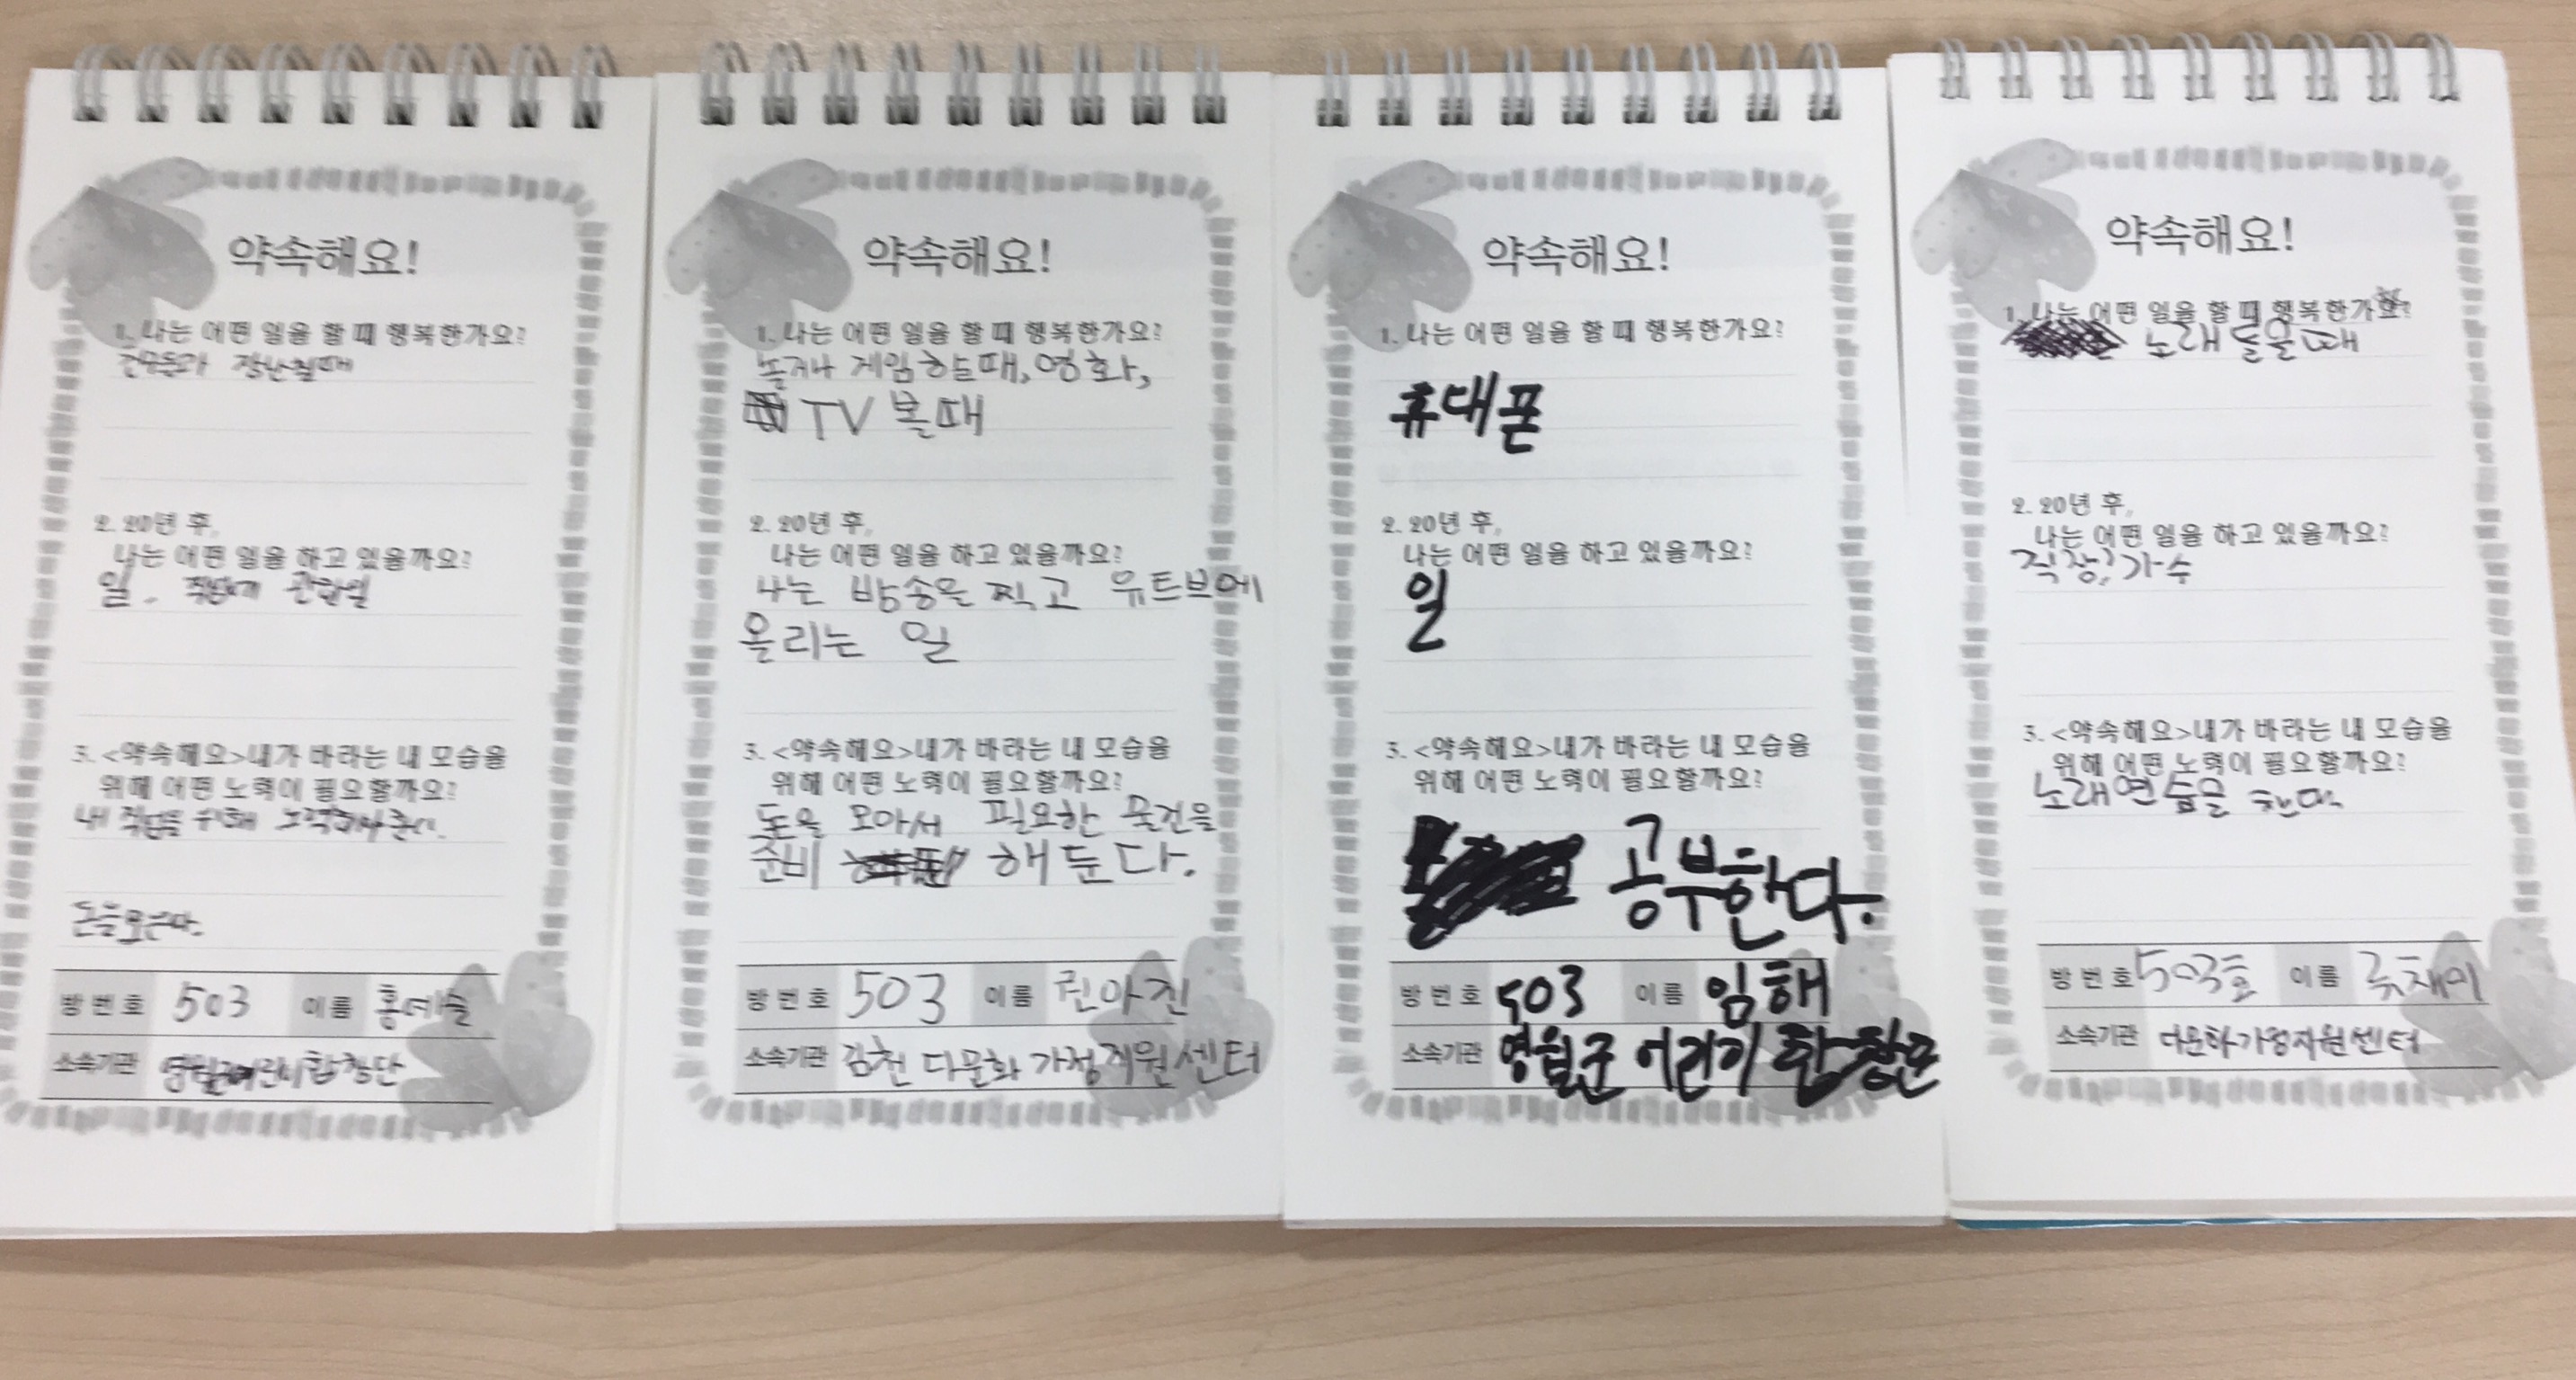 약속해요!
1. 나는 어떤 일을 할 때 행복한가요?
친구들과 장난칠때
2. 20년 후,
나는 어떤 일을 하고 있을까요?
일.
3. <약속해요>내가 바라는 내 모습을
위해 어떤 노력이 필요할까요?
내 직업을 위해
돈을모은다.
방 번 호 503 이 름 홍예슬
소속기관 영월군어린이합창단
약속해요!
1. 나는 어떤 일을 할 때 행복한가요?
놀거나 게임 하는때, 영화,
TV 볼때
2. 20년 후,
나는 어떤 일을 하고 있을까요?
나는 방송을 찍고 유트브에
올리는 일
3. <약속해요>내가 바라는 내 모습을
위해 어떤 노력이 필요할까요?
돈을 모아서 필요한 물건을
준비 해 둔다.
방 번 호 503 이 름 권아진
소속기관 김천 다문화 가정지원센터
약속해요!
1. 나는 어떤 일을 할 때 행복한가요?
휴대폰
2. 20년 후,
나는 어떤 일을 하고 있을까요?
일
3. <약속해요>내가 바라는 내 모습을
위해 어떤 노력이 필요할까요?
공부한다.
방 번 호 503 이 름 임해
소속기관 영월군 어린이 합창단
약속해요!
1. 나는 어떤 일을 할 때 행복한가요?
노래 들을 때
2. 20년 후,
나는 어떤 일을 하고 있을까요?
직장, 가수
3. <약속해요>내가 바라는 내 모습을
위해 어떤 노력이 필요할까요?
노래연습을 한다.
방 번 호 503호 이 름
소속기관 다문화가정지원센터